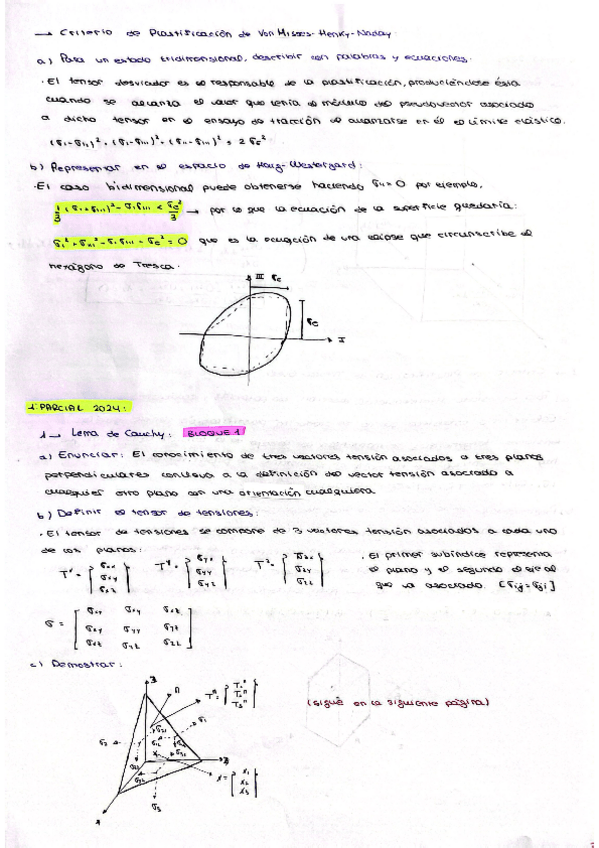 → Criterio de Plastificación de Von Misses-Henky-Naday:
a) Para un estado tridimensional, describir con palabras y ecuaciones:
· El tensor desviador es el responsable de la plastificación, produciéndose ésta
cuando se alcanza el valor que tenía el módulo del pseudovector asociado
a dicho tensor en el ensayo de tracción al alcanzarse en él el límite elástico.
(σI-σII)² + (σI-σIII)² + (σII-σIII)² = 2σe²
b) Representar en el espacio de Haig-Westergard:
· El caso bidimensional puede obtenerse haciendo σII=0 por ejemplo,
1/3 (σI+σIII)² - σIσIII < σe²/3 → por lo que la ecuación de la superficie quedaría:
σI² + σIII² - σIσIII - σe² = 0 que es la ecuación de una elipse que circunscribe el
hexágono de Tresca.
III σe
σe
I
1º PARCIAL 2024:
1 → Lema de Cauchy: BLOQUE 1
a) Enunciar: El conocimiento de tres vectores tensión asociados a tres planos
perpendiculares conlleva a la definición del vector tensión asociado a
cualquier otro plano con una orientación cualquiera.
b) Definir el tensor de tensiones:
· El tensor de tensiones se compone de 3 vectores tensión asociados a cada uno
de los planos:
· El primer subíndice representa
el plano y el segundo el eje al
que va asociado. [σij=σji]
c) Demostrar:
(sigue en la siguiente página)